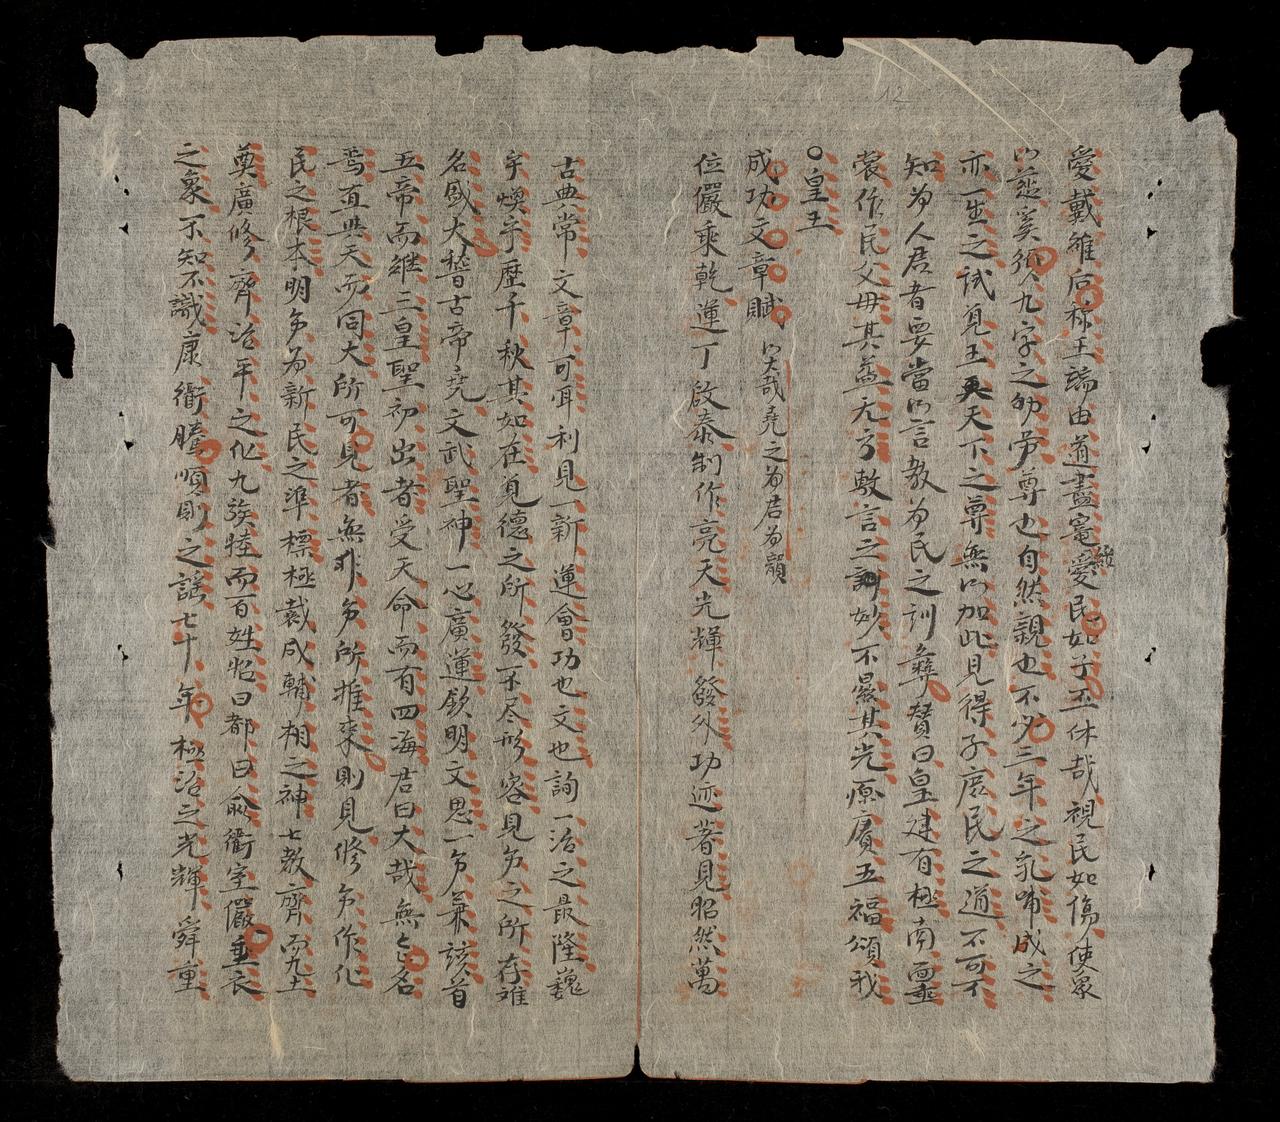 愛戴雖后称王端由道盡寔愛民如子丕休哉視民如傷使衆
以莚奚須九字之劬劳尊也自然親也不必三年之乳哺成之
亦一生之試覓王天下之尊無以加此見得子庶民之道不可不
知为人君者要當以言教为民之訓彝賛曰皇建有極南面垂
裳作民父母其益无方敷言之訓妙不曻其光原賡五福頌我
皇王
成功文章賦 以哉堯之为君为韻
位儼乘乾運丁啟泰制作亮天光輝發外功迹著見昭然萬
古典常文章可耳利見一新運會功也文也詢一治之最隆巍
乎煥乎歷千秋其如在覓德之所發不尽形容見於之所存难
名盛大稽古帝尭文武聖神一心廣運欽明文思一身兼該首
五帝而継三皇聖初出者受天命而有四海君曰大哉無以名
焉直與天而同大所可見者無非身所推來則見修身作化
民之根本明身为新民之準標極裁成輔相之神七教齊而九土
奠廣修齊治平之化九族睦而百姓昭曰都曰兪衢室儼垂衣
之象不知不識康衢騰順則之謠七十年極治之光輝舜重
綏
12